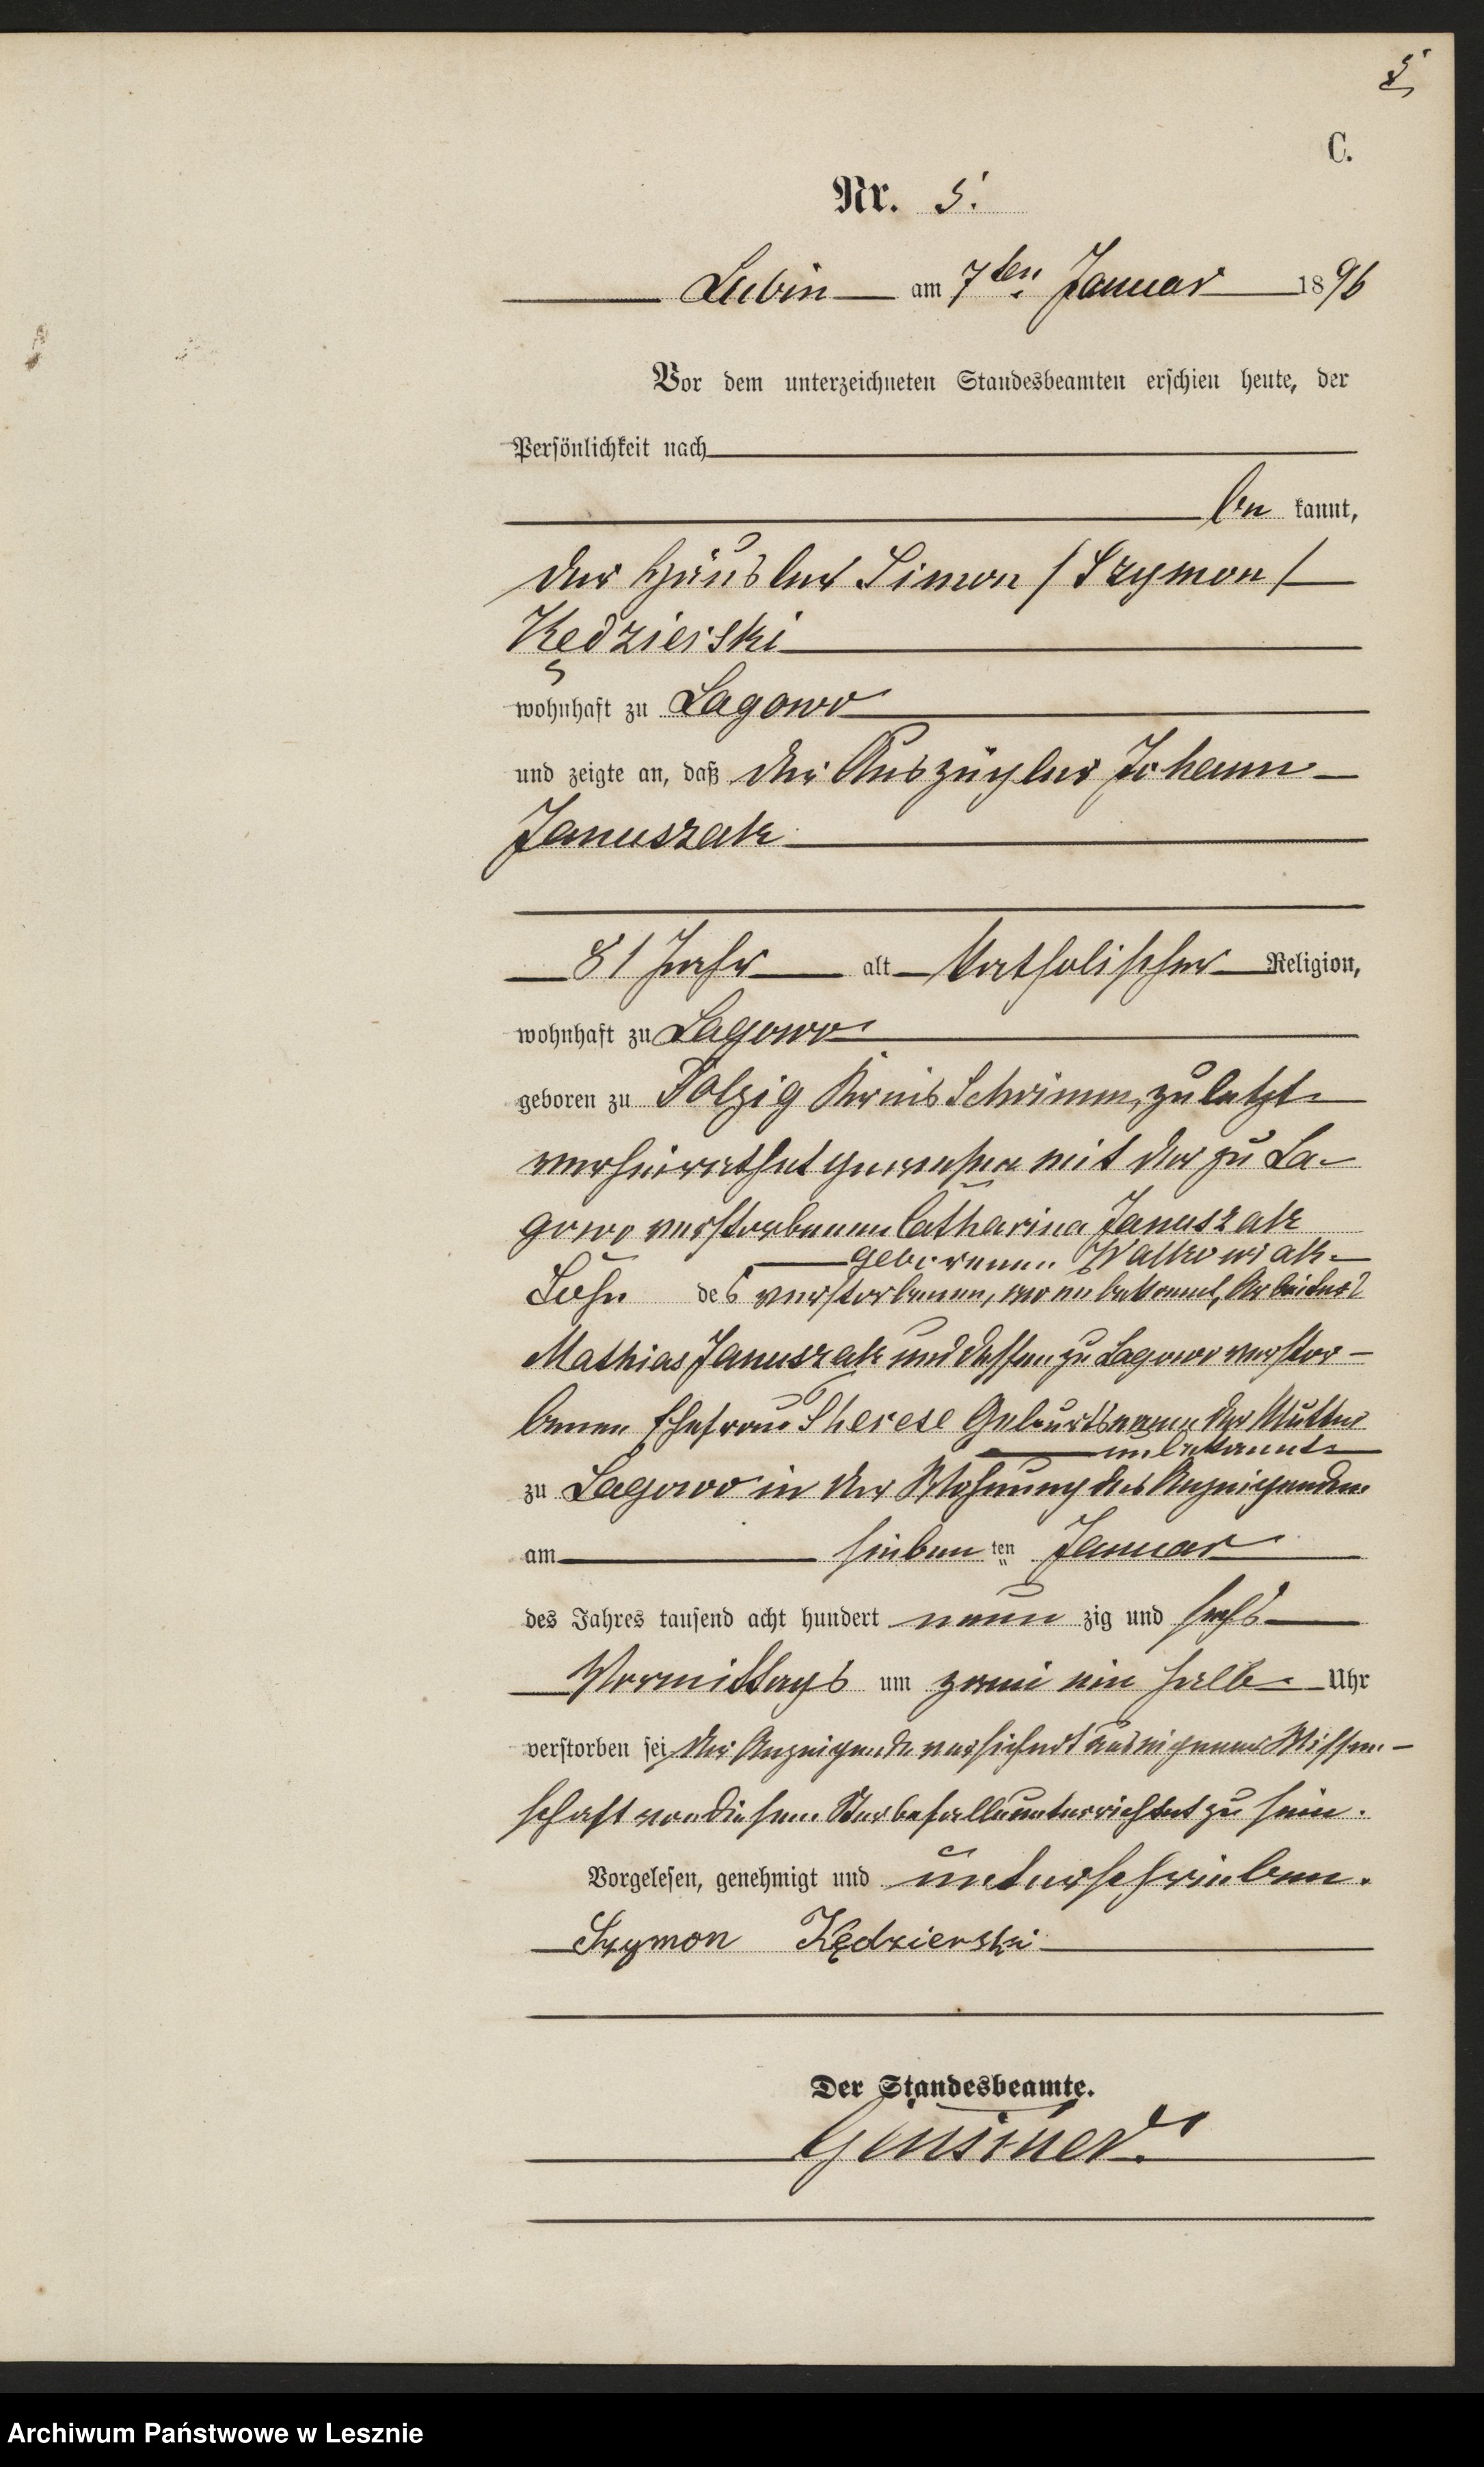 5
C.
Nr. 5.
Lubin am 7ten Januar 1896
Vor dem unterzeichneten Standesbeamten erschien heute, der
Persönlichkeit nach
be kannt,
der Häusler Simon /Szymon/
Kędzierski
wohnhaft zu Lagowo
und zeigte an, daß der Auszügler Johann
Januszak
81 Jahr alt katholischer Religion,
wohnhaft zu Lagowo
geboren zu Dolzig Kreis Schrimm, zuletzt
verheirathet gewesen mit der zu La-
gowo verstorbenen Catharina Januszak
geborenen Walkowiak
Sohn des verstorbenen, wo unbekannt, Arbeiters
Mathias Januszak und dessen zu Lagowo verstor-
benen Ehefrau Therese Geburtsname der Mutter
unbekannt
zu Lagowo in der Wohnung des Anzeigenden
am sieben ten Januar
des Jahres tausend acht hundert neun zig und sechs
Vormittags um zwei ein halb Uhr
verstorben sei, der Anzeigende versichert aus eigener Wissen-
schaft von diesem Sterbefalle unterrichtet zu sein.
Vorgelesen, genehmigt und unterschrieben.
Szymon Kędzierski
Der Standesbeamte.
Archiwum Państwowe w Lesznie